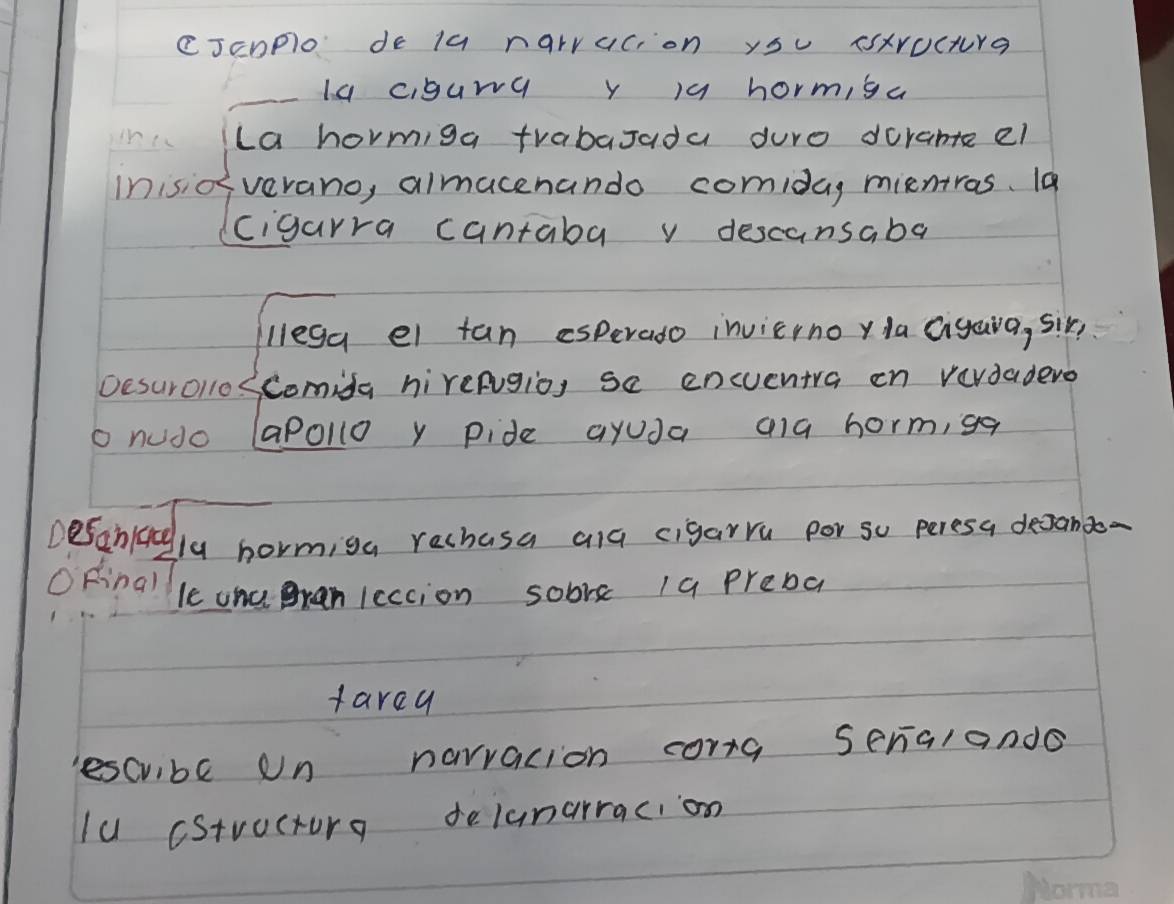 eJenplo de la narracion y su estructura
la cigarra y la hormiga
La hormiga trabajada duro durante el
inisio verano, almacenando comida, mientras la
cigarra cantaba y descansaba
llega el tan esperado invierno y la cigara, sin
Desarollo comida ni refugio, se encuentra en verdadero
o nudo apollo y pide ayuda ala hormiga
Desanlace la hormiga rechasa ala cigarra por su peresa dejando-
O Final le una gran leccion sobre la preba
tarea
escribe un narracion corta señalando
la estructura de lanarracion
Norma